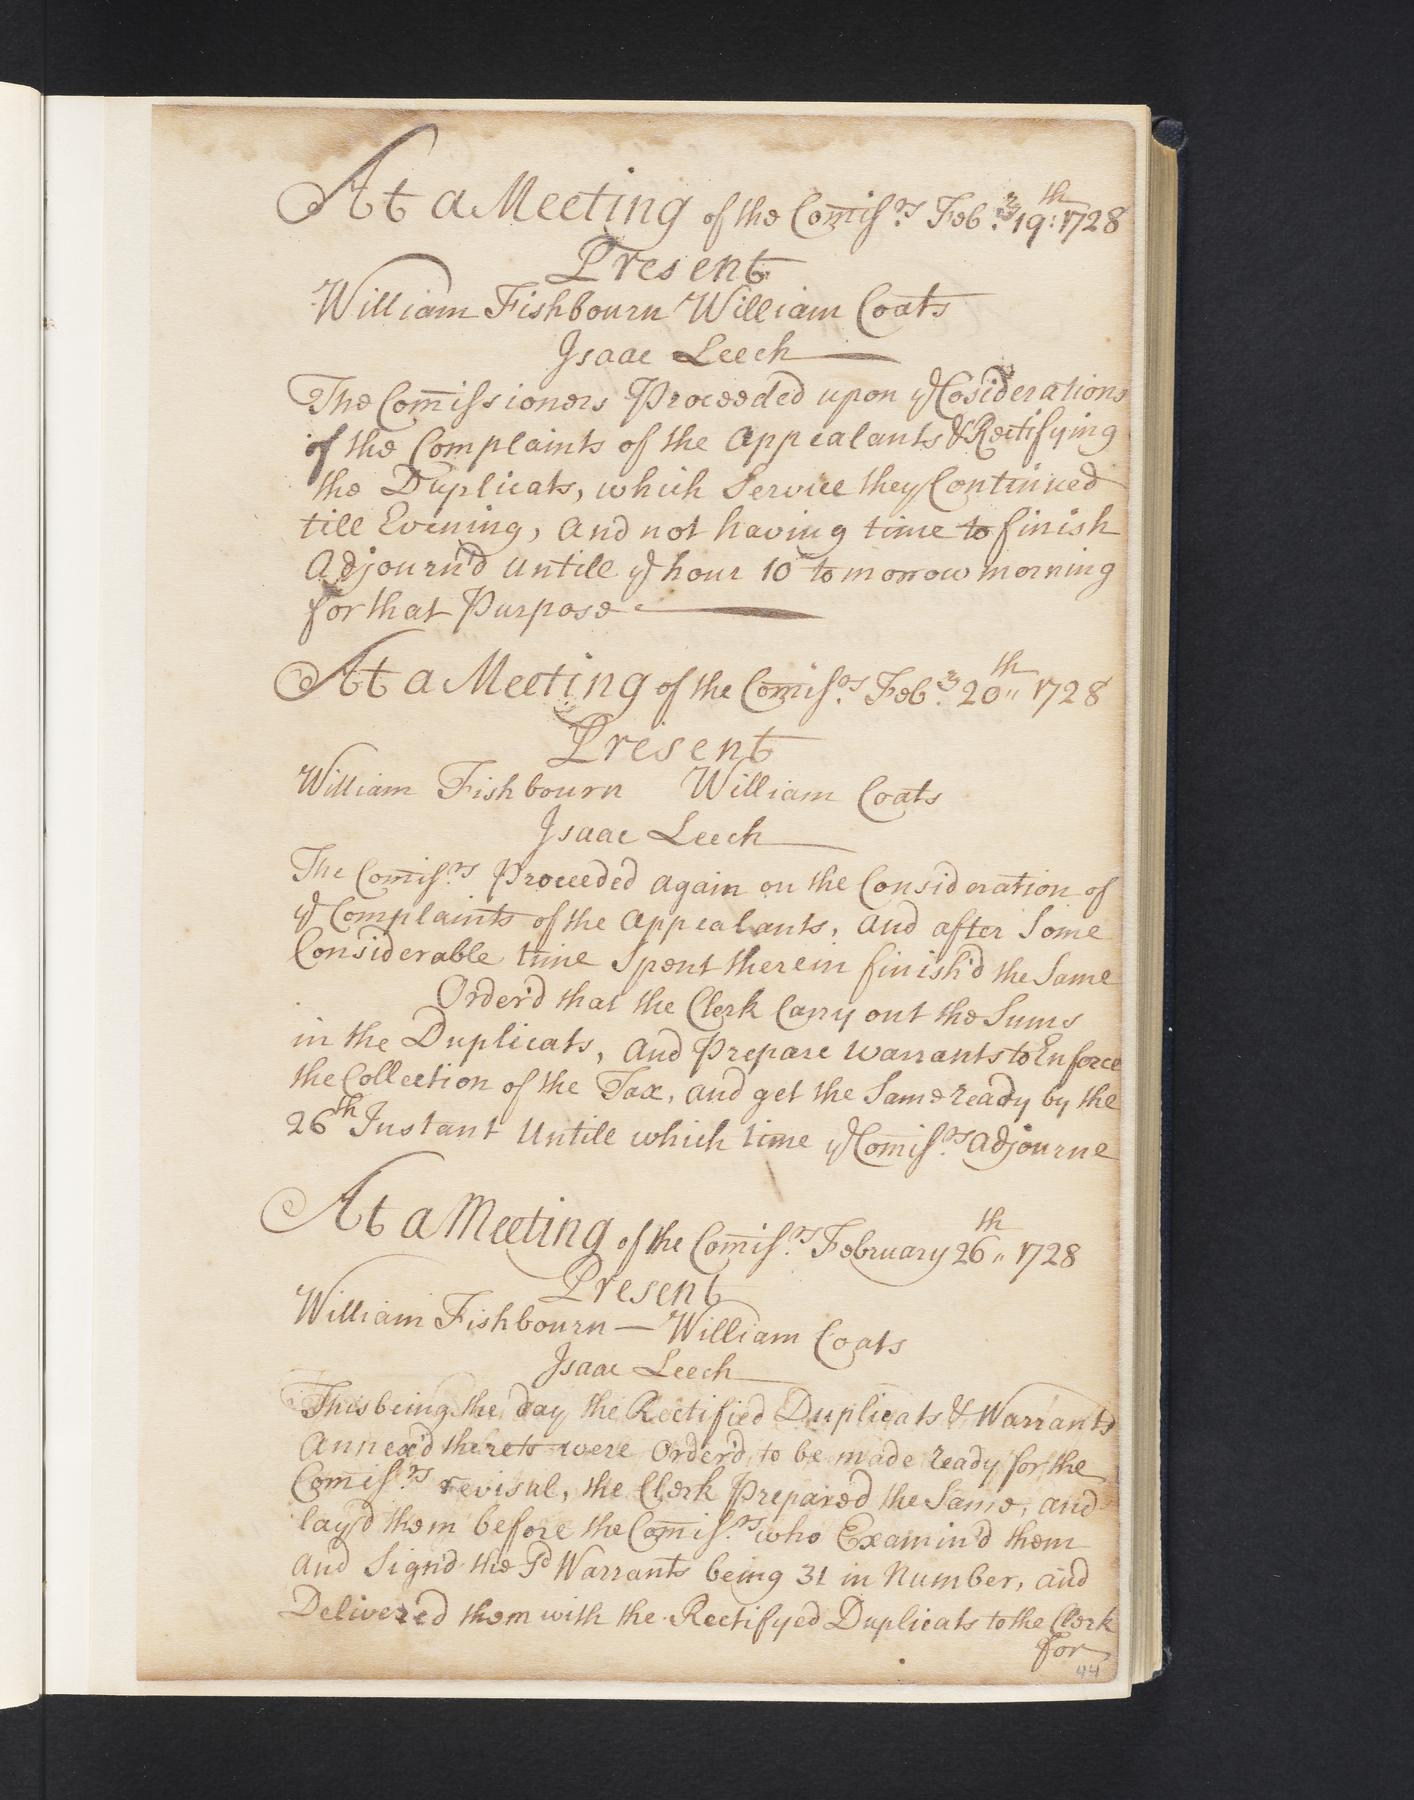 At a Meeting of the Com̄iss.rs Feb.ry 19th: 1728
Present
William Fishbourn William Coats
Isaac Leech
The Com̄issioners Proceeded upon ye Cosiderations
of the Complaints of the Appealants & Rectifying
the Duplicats, which Service they Continued
till Evening, and not having time to finish
Adjourn'd untill ye hour 10 to morrow morning
for that Purpose
At a Meeting of the Com̄iss.rs Feb.ry 20th 1728
Present
William Fishbourn William Coats
Isaac Leech
The Com̄iss.rs Proceeded again on the Consideration of
ye Complaints of the Appealants, and after Some
Considerable time Spent therein finish'd the Same
Order'd that the Clerk Carry out the Sums
in the Duplicats, and Prepare Warrants to Enforce
the Collection of the Tax, and get the Same ready by the
26th Instant Untill which time ye Com̄iss.rs adjourne
At a Meeting of the Com̄iss.rs February 26th 1728
Present
William Fishbourn — William Coats
Isaac Leech
This being the day the Rectified Duplicats & Warrants
Annex'd thereto were Order'd to be made ready for the
Com̄iss.rs revisul, the Clerk Prepared the Same, and
lay'd them before the Com̄iss.rs who Examin'd them
and Sign'd the Sd Warrants being 31 in Number, and
Delivered them with the Rectifyed Duplicats to the Clerk
for
44